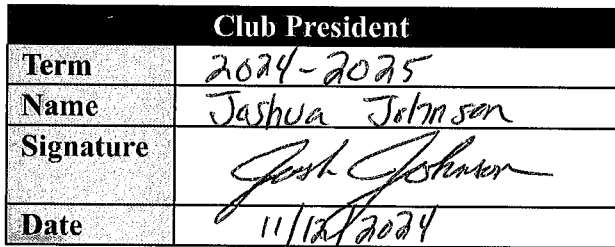 Club President
Term 2024-2025
Name Joshua Johnson
Signature Josh Johnson
Date 11/12/2024